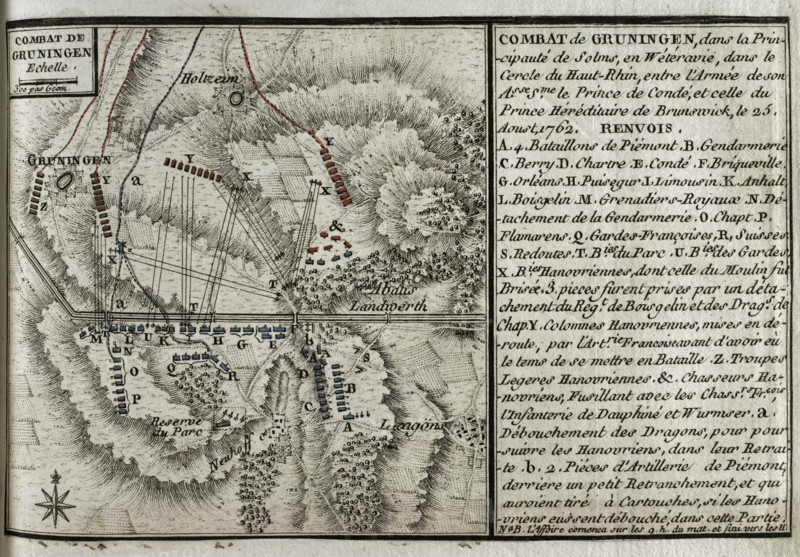 COMBAT DE
GRUNINGEN
Echelle.
300 pas Geom.
Holtzeim
GRUNINGEN
Z
Y
a
Y
X
Y
X
&
X
T
T
a
Abatis
Landwerth
M L U K I H G E F
b
N
O
P
Q
R
A
D
C
B
A
S
Reserve
du Parc
Neuhoff
Leingöns
COMBAT de GRUNINGEN, dans la Prin-
-cipauté de Solms, en Wétéravie, dans le
Cercle du Haut-Rhin, entre l'Armée de son
A.sse S.me le Prince de Condé, et celle du
Prince Héréditaire de Brunswick, le 25.
Aoust, 1762. RENVOIS.
A. 4. Bataillons de Piémont. B. Gendarmerie
C. Berry. D. Chartre. E. Condé. F. Briqueville.
G. Orléans. H. Puisegur. I. Limousin. K. Anhalt,
L. Boisgelin. M. Grenadiers-Royaux. N. Dé-
-tachement de la Gendarmerie. O. Chapt. P.
Flamarens. Q. Gardes-Françoises, R, Suisses,
S. Redoutes. T. B.ies du Parc. U. B.ies des Gardes,
X. B.ies Hanovriennes, dont celle du Moulin fut
Brisée. 3. pieces furent prises par un déta-
-chement du Reg.t de Boisgelin et des Drag.s de
Chap. Y. Colomnes Hanovriennes, mises en dé-
-route, par l'Art.rie Francoise avant d'avoir eü
le tems de se mettre en Bataille. Z. Troupes
Legeres Hanovriennes. &. Chasseurs Ha-
-novriens, Fusillant avec les Chass.rs Fr.cois
l'Infanterie de Dauphiné et Wurmser. a.
Débouchement des Dragons, pour pour-
suivre les Hanovriens, dans leur Retrai-
-te. b. 2. Piéces d'Artillerie de Piémont,
derriere un petit Retranchement, et qui
auroient tiré à Cartouches, si les Hano-
-vriens eussent débouché, dans cette Partie.
N.a B. l'Affaire comenca sur les 9. h. du mat. et fini vers les 11.